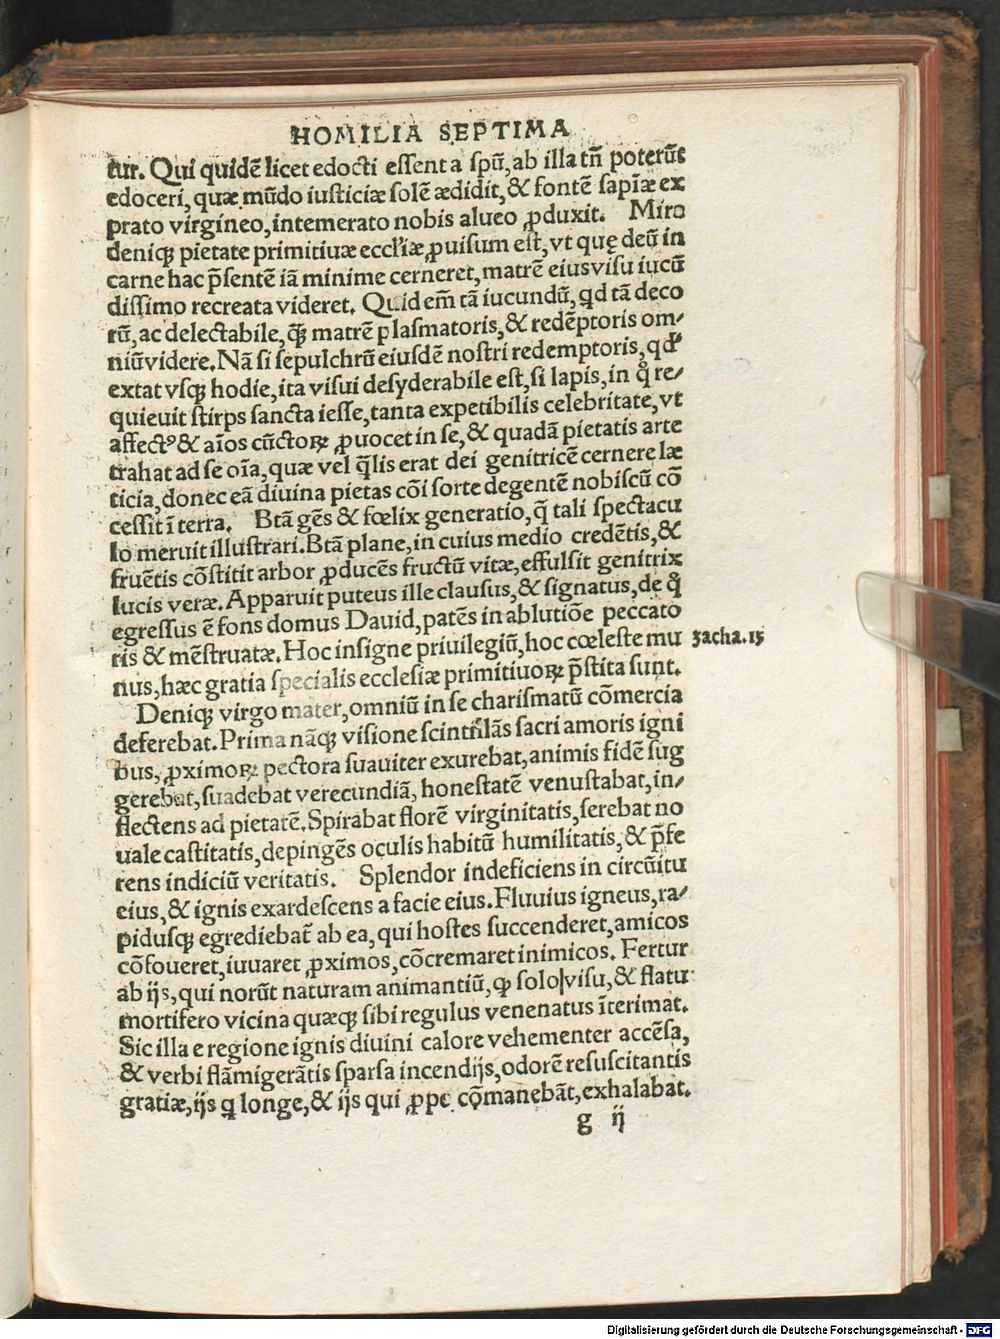 HOMILIA SEPTIMA
tur. Qui quidē licet edocti eſſent a ſpū, ab illa tñ poterūt
edoceri, quæ mūdo iuſticiæ ſolē ædidit, & fontē ſapīæ ex
prato virgineo, intemerato nobis alueo ꝓduxit. Miro
deniqꝫ pietate primitiuæ eccl'iæ ꝓuiſum eſt, vt quę deū in
carne hac p̄ſentē iā minime cerneret, matrē eius viſu iucū
diſſimo recreata videret. Quid em̄ tā iucundū, qd tā deco
rū, ac delectabile, q̄ꝫ matrē plaſmatoris, & redēptoris om⸗
niū videre. Nā ſi ſepulchrū eiuſdē noſtri redemptoris, qđ
extat vſqꝫ hodie, ita viſui deſyderabile eſt, ſi lapis, in q̊ re⸗
quieuit ſtirps ſancta ieſſe, tanta expetibilis celebritate, vt
affectꝰ & aīos cūctoꝝ ꝓuocet in ſe, & quadā pietatis arte
trahat ad ſe oīa, quæ vel q̄lis erat dei genitricē cernere læ
ticia, donec eā diuina pietas cōi ſorte degentē nobiſcū cō
ceſſit ī terra. Btā gēs & fœlix generatio, q̄ tali ſpectacu
lo meruit illuſtrari. Btā plane, in cuius medio credētis, &
fruētis cōſtitit arbor ꝓducēs fructū vitæ, effulſit genitrix
lucis veræ. Apparuit puteus ille clauſus, & ſignatus, de q̊
egreſſus ē fons domus Dauid, patēs in ablutiōe peccato
ris & mēſtruatæ. Hoc inſigne priuilegiū, hoc cœleſte mu
nus, hæc gratia ſpecialis eccleſiæ primitiuoꝝ p̄ſtita ſunt.
zacha. 13
Deniqꝫ virgo mater, omniū in ſe chariſmatū cōmercia
deferebat. Prima nāqꝫ viſione ſcintillās ſacri amoris igni
bus, ꝓximoꝝ pectora ſuauiter exurebat, animis fidē ſug
gerebat, ſuadebat verecundiā, honeſtatē venuſtabat, in⸗
flectens ad pietatē. Spirabat florē virginitatis, ſerebat no
uale caſtitatis, depingēs oculis habitū humilitatis, & p̄fe
rens indiciū veritatis. Splendor indeficiens in circūitu
eius, & ignis exardeſcens a facie eius. Fluuius igneus, ra⸗
piduſqꝫ egrediebat̄ ab ea, qui hoſtes ſuccenderet, amicos
cōfoueret, iuuaret ꝓximos, cōcremaret inimicos. Fertur
ab ijs, qui norūt naturam animantiū, ꝙ ſolo viſu, & flatu
mortifero vicina quæqꝫ ſibi regulus venenatus īterimat.
Sic illa e regione ignis diuini calore vehementer accēſa,
& verbi flāmigerātis ſparſa incendijs, odorē reſuſcitantis
gratiæ, ijs ꝗ longe, & ijs qui ꝓpe cōmanebāt, exhalabat.
g ij
Digitalisierung gefördert durch die Deutsche Forschungsgemeinschaft - DFG